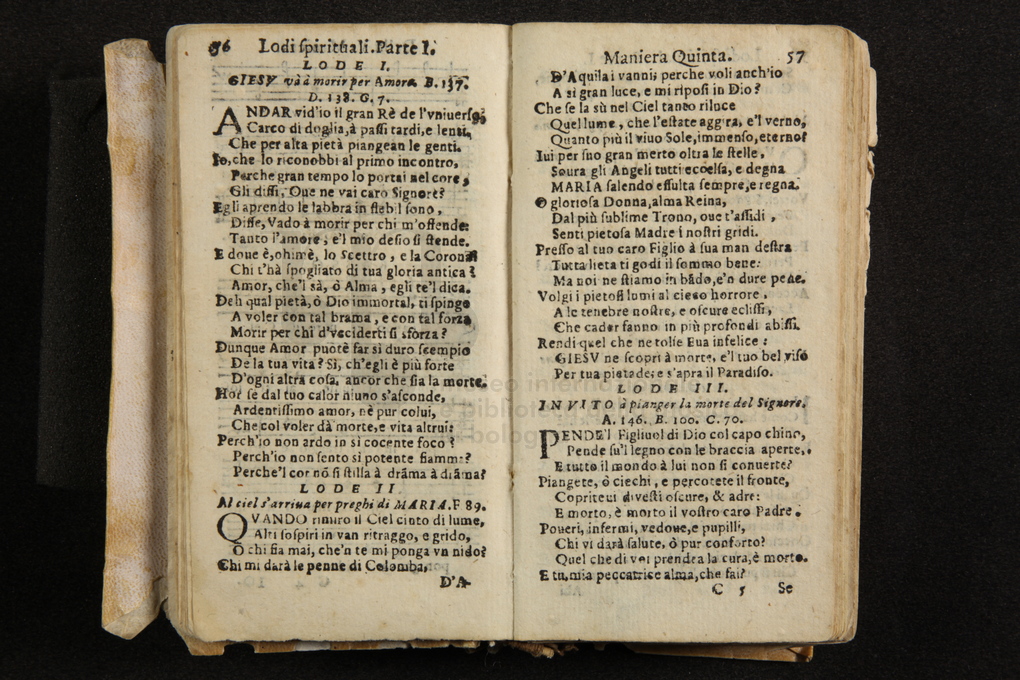 56 Lodi spirituali. Parte I.
LODE I.
GIESV và à morir per Amore. B. 137.
D. 138. G. 7.
ANDAR vid'io il gran Rè de l'vniuerso,
Carco di doglia, à passi tardi, e lenti,
Che per alta pietà piangean le genti.
Io, che lo riconobbi al primo incontro,
Perche gran tempo lo portai nel core,
Gli dissi, Oue ne vai caro Signore?
Egli aprendo le labbra in flebil sono,
Disse, Vado à morir per chi m'offende:
Tanto l'amore, e'l mio desio si stende.
E doue è, ohimè, lo Scettro, e la Corona?
Chi t'hà spogliato di tua gloria antica?
Amor, che'l sà, ò Alma, egli te'l dica.
Deh qual pietà, ò Dio immortal, ti spinge
A voler con tal brama, e con tal forza
Morir per chi d'vcciderti si sforza?
Dunque Amor puotè far sì duro scempio
De la tua vita? Sì, ch'egli è più forte
D'ogni altra cosa, ancor che sia la morte.
Hor se dal tuo calor niuno s'asconde,
Ardentissimo amor, nè pur colui,
Che col voler dà morte, e vita altrui:
Perch'io non ardo in sì cocente foco?
Perch'io non sento sì potente fiamma?
Perche'l cor nō si stilla à drāma à drāma?
LODE II.
Al ciel s'arriua per preghi di MARIA. F 89.
QVANDO rimiro il Ciel cinto di lume,
Alti sospiri in van ritraggo, e grido,
O chi fia mai, che'n te mi ponga vn nido?
Chi mi darà le penne di Colomba,
D'A-
Maniera Quinta. 57
D'Aquila i vanni; perche voli anch'io
A sì gran luce, e mi riposi in Dio?
Che se la sù nel Ciel tanto riluce
Quel lume, che l'estate aggira, e'l verno,
Quanto più il viuo Sole, immenso, eterno?
Iui per suo gran merto oltra le stelle,
Soura gli Angeli tutti eccelsa, e degna
MARIA salendo essulta sempre, e regna.
O gloriosa Donna, alma Reina,
Dal più sublime Trono, oue t'assidi,
Senti pietosa Madre i nostri gridi.
Presso al tuo caro Figlio à sua man destra
Tutta lieta ti godi il sommo bene:
Ma noi ne stiamo in bādo, e'n dure pene.
Volgi i pietosi lumi al cieco horrore,
A le tenebre nostre, e oscure eclissi,
Che cader fanno in più profondi abissi.
Rendi quel che ne tolse Eua infelice:
GIESV ne scopri à morte, e'l tuo bel viso
Per tua pietade: e s'apra il Paradiso.
LODE III.
INVITO à pianger la morte del Signore.
A. 146. B. 100. C. 70.
PENDE'l Figliuol di Dio col capo chino,
Pende su'l legno con le braccia aperte,
E tutto il mondo à lui non si conuerte?
Piangete, ò ciechi, e percotete il fronte,
Copriteui di vesti oscure, & adre:
E morto, è morto il vostro caro Padre.
Poueri, infermi, vedoue, e pupilli,
Chi vi darà salute, ò pur conforto?
Quel che di voi prendea la cura, è morto.
E tu, mia peccatrice alma, che fai?
C 5 Se